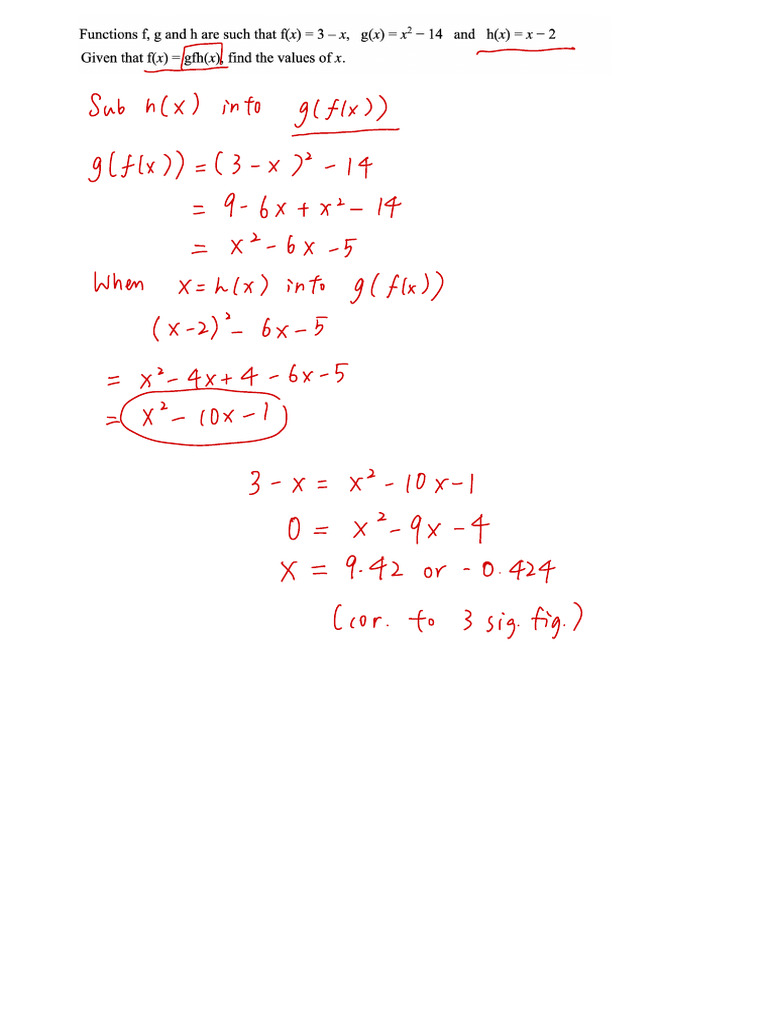 Functions f, g and h are such that f(x) = 3 – x, g(x) = x² − 14 and h(x) = x − 2
Given that f(x) = gfh(x), find the values of x.
Sub h(x) into g(f(x))
g(f(x)) = (3 - x)² - 14
= 9 - 6x + x² - 14
= x² - 6x - 5
When x = h(x) into g(f(x))
(x-2)² - 6x - 5
= x² - 4x + 4 - 6x - 5
= x² - 10x - 1
3 - x = x² - 10x - 1
0 = x² - 9x - 4
x = 9.42 or - 0.424
(cor. to 3 sig. fig.)